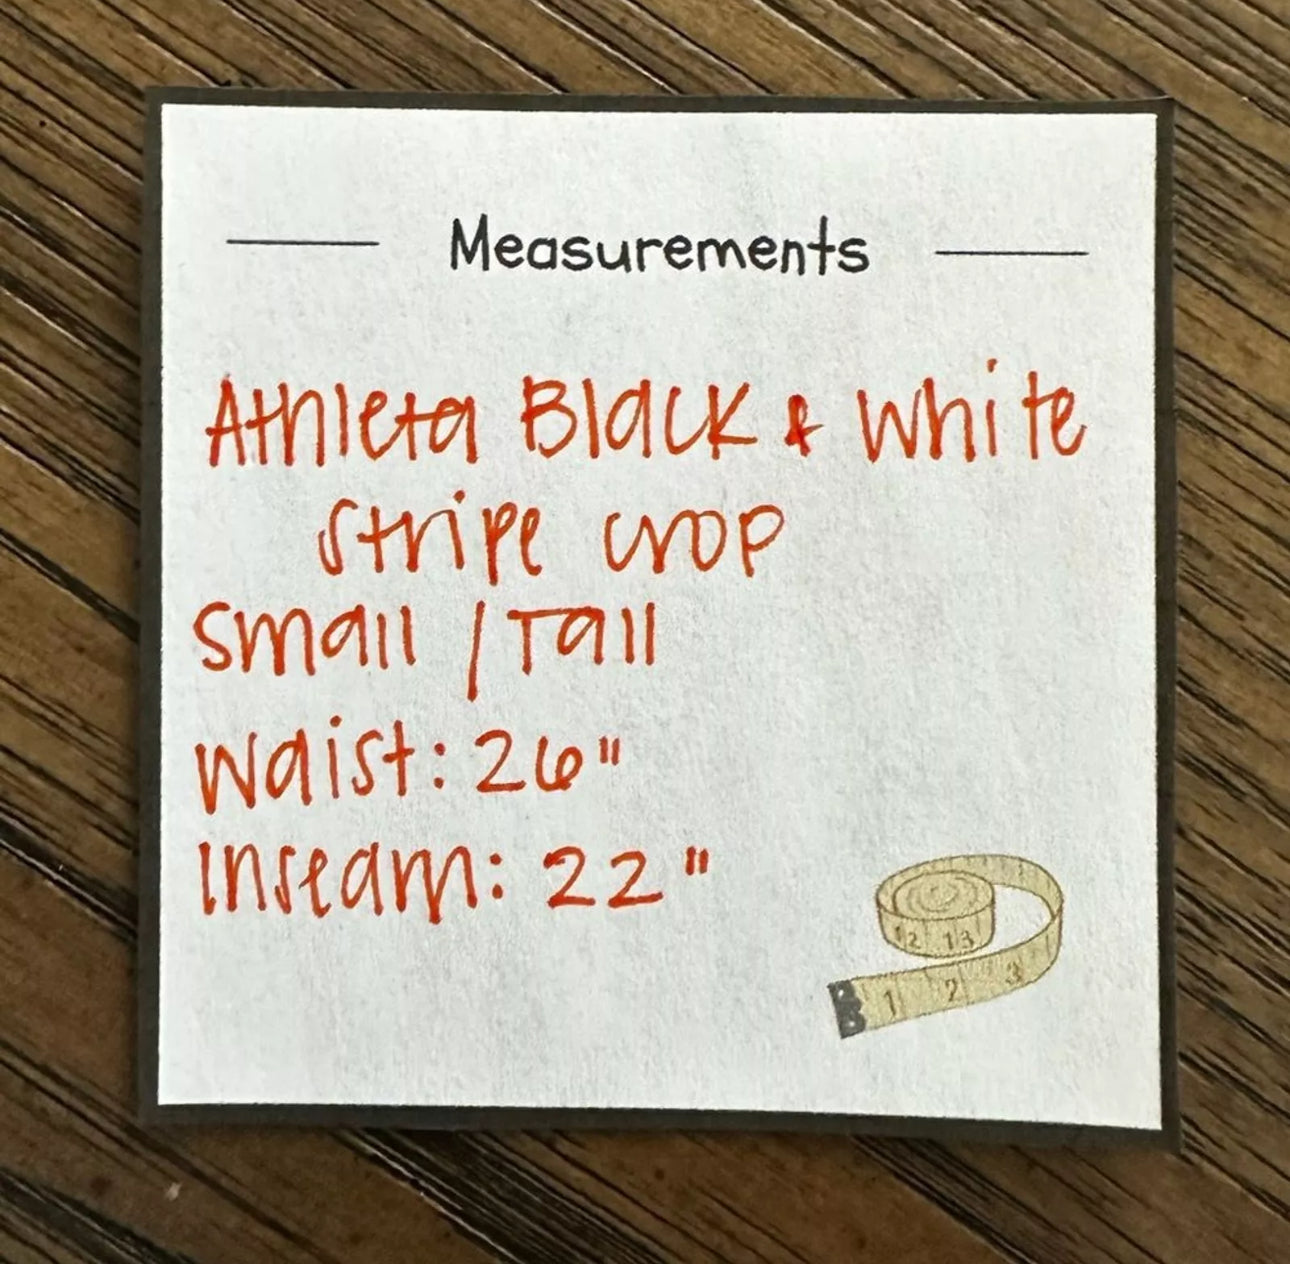 Measurements
Athleta Black & White
Stripe crop
Small / Tall
Waist: 26"
Inseam: 22"
12 13
1 2 3